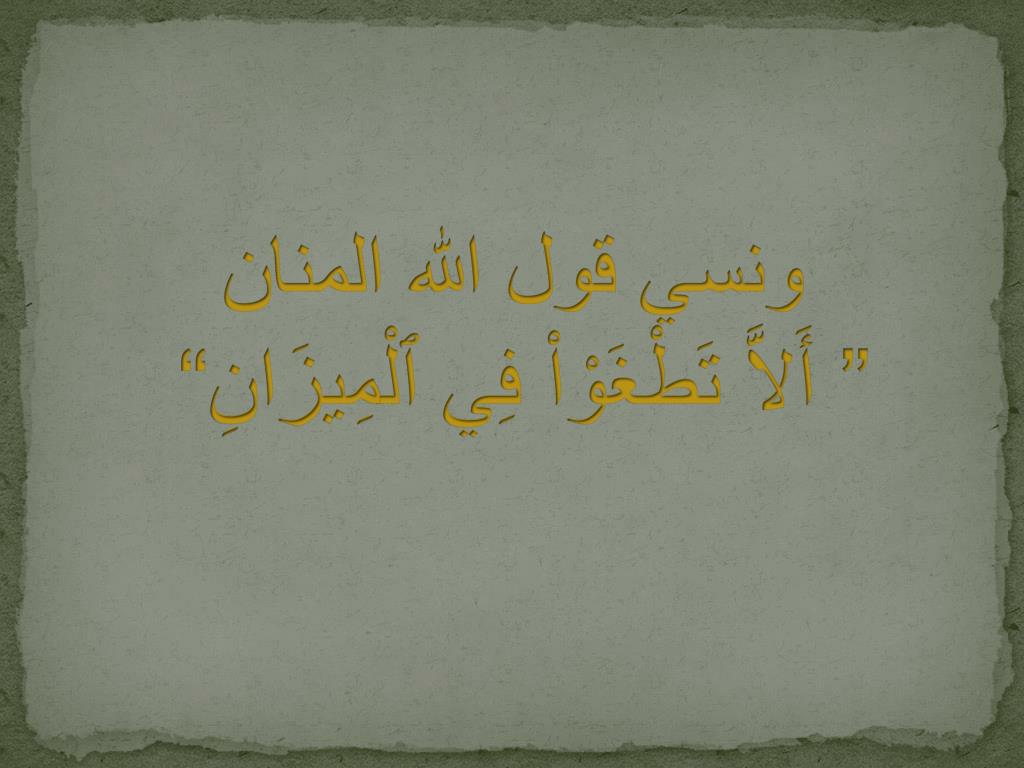 ونسي قول الله المنان
” أَلاَّ تَطْغَوْاْ فِي ٱلْمِيزَانِ“